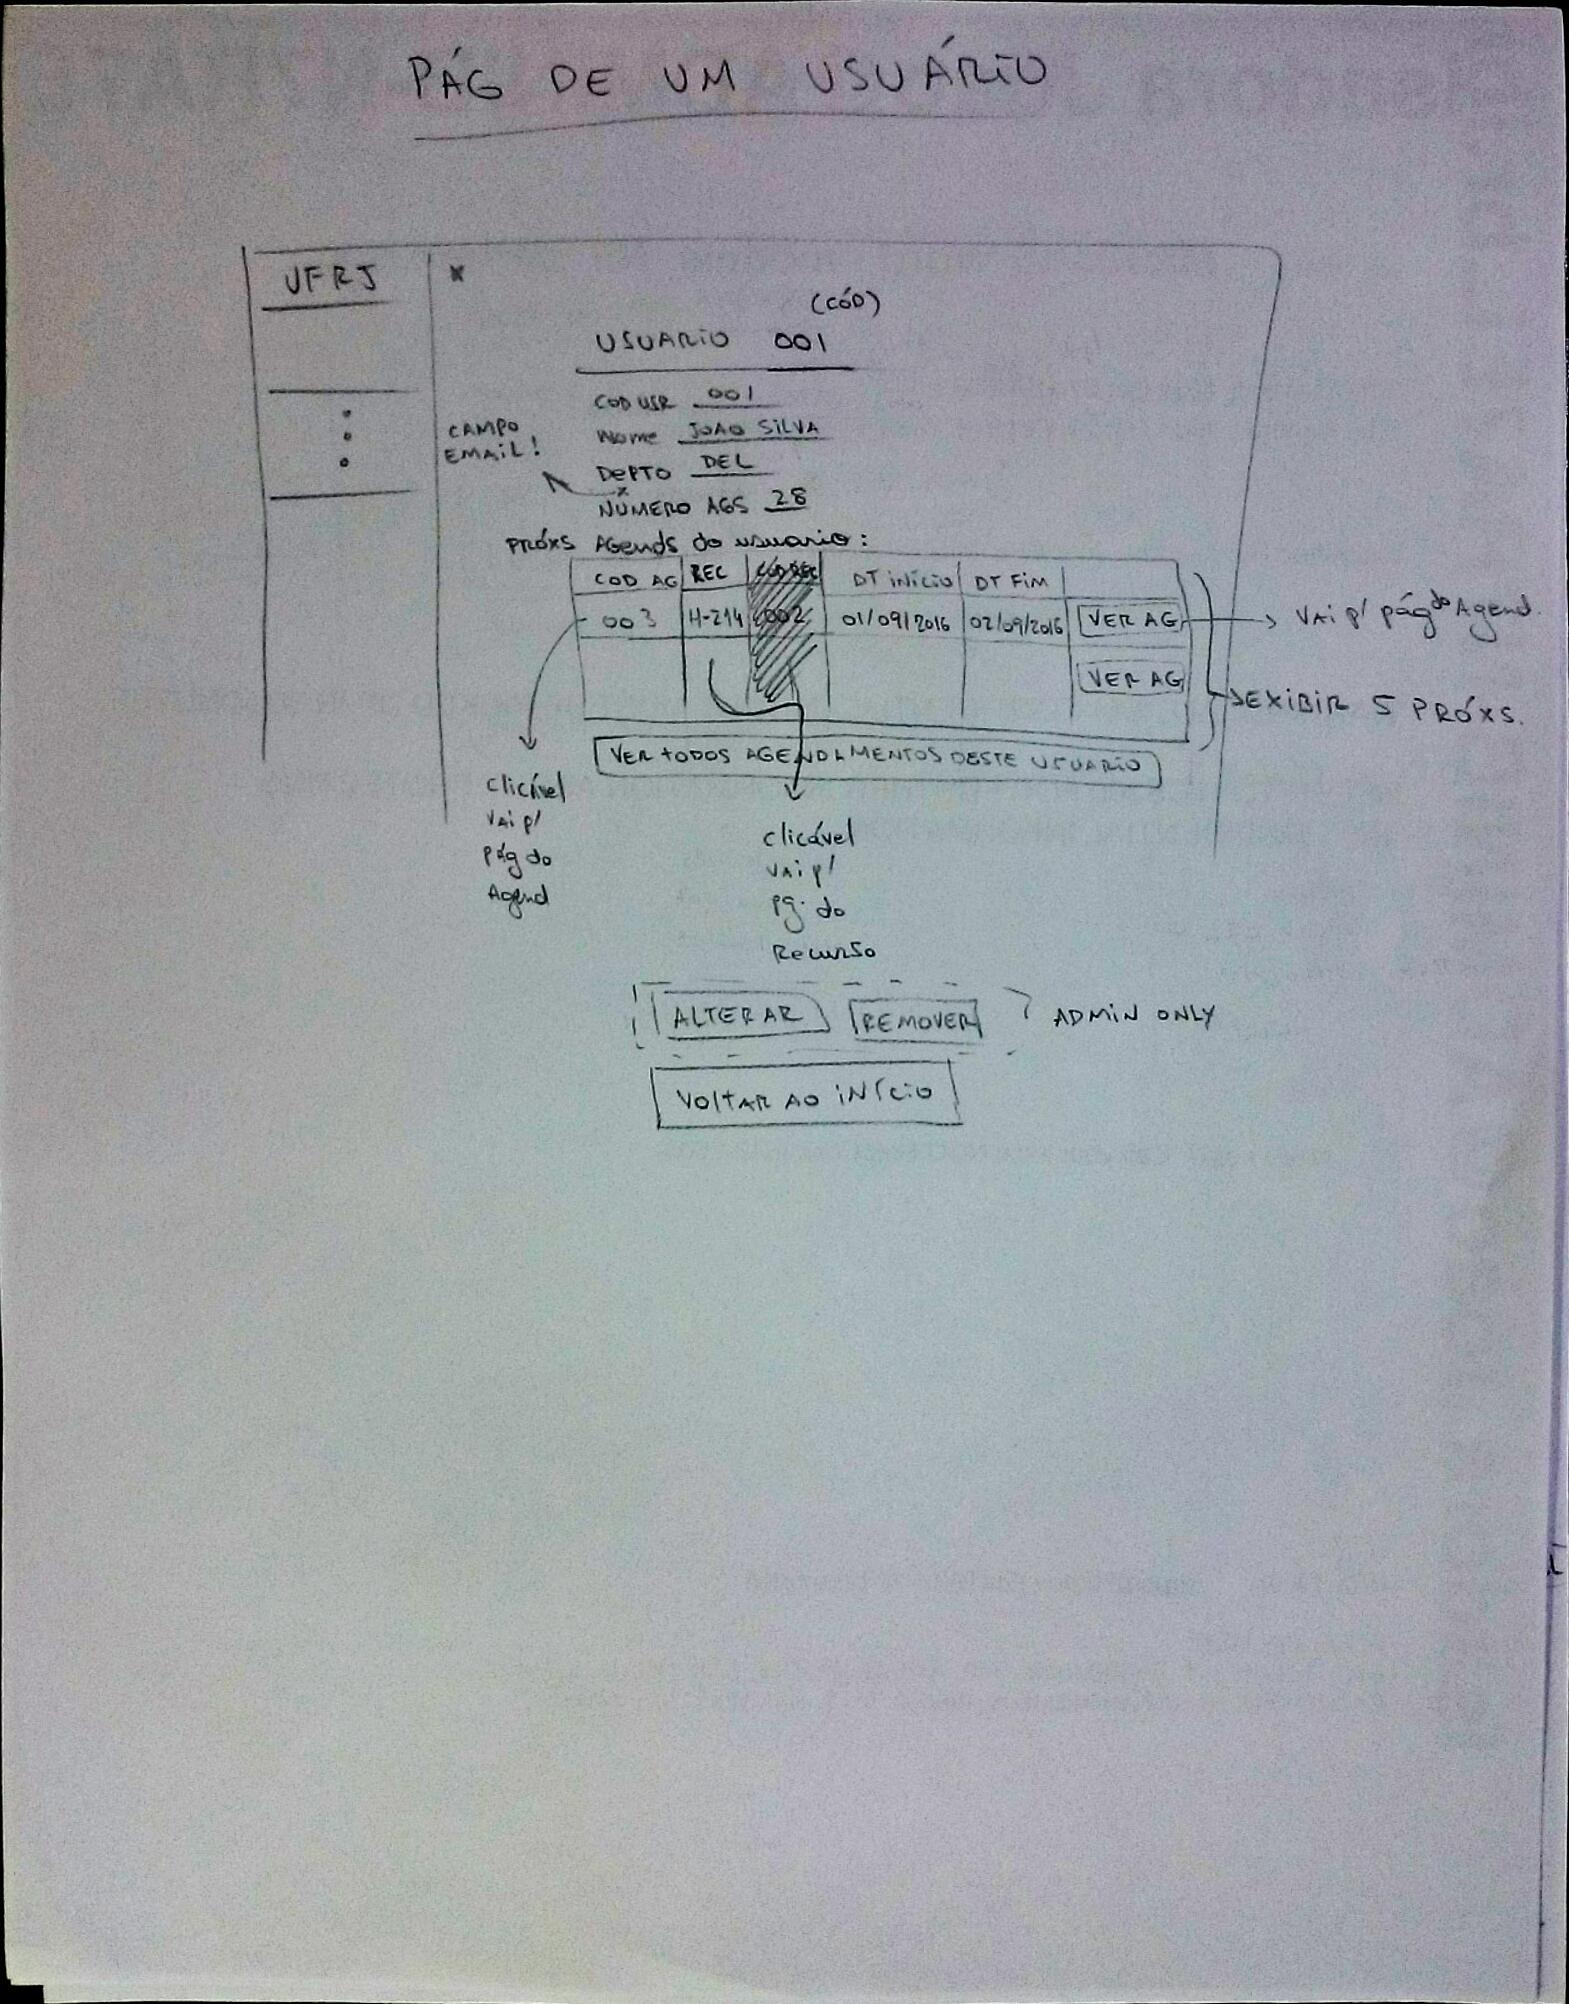 PÁG DE UM USUÁRIO
UFRJ
x
(CÓD)
USUARIO 001
COD USR 001
CAMPO
EMAIL!
Nome JOAO SILVA
DEPTO DEL
x
NÚMERO AGS 28
PRÓXS Agends do usuario:
COD AG REC COD REC DT INÍCIO DT FIM
003 H-214 002 01/09/2016 02/09/2016 VER AG
VAI p/ pág do Agend.
VER AG
EXIBIR 5 PRÓXS.
VER TODOS AGENDAMENTOS DESTE USUARIO
clicável
VAI p/
pág do
Agend
clicável
VAI p/
pg. do
Recurso
ALTERAR REMOVER ADMIN ONLY
VOLTAR AO INÍCIO